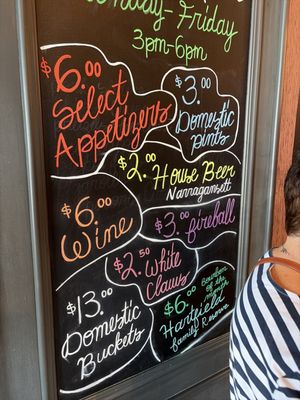 Monday-Friday
3pm-6pm
$6.00
Select
Appetizers
$3.00
Domestic
pints
$2.00
House Beer
Narragansett
$6.00
Wine
$3.00 fireball
$2.50 White
Claws
$13.00
Domestic
Buckets
$6.00
Bourbon
of the
month
Hartfield
family Reserve